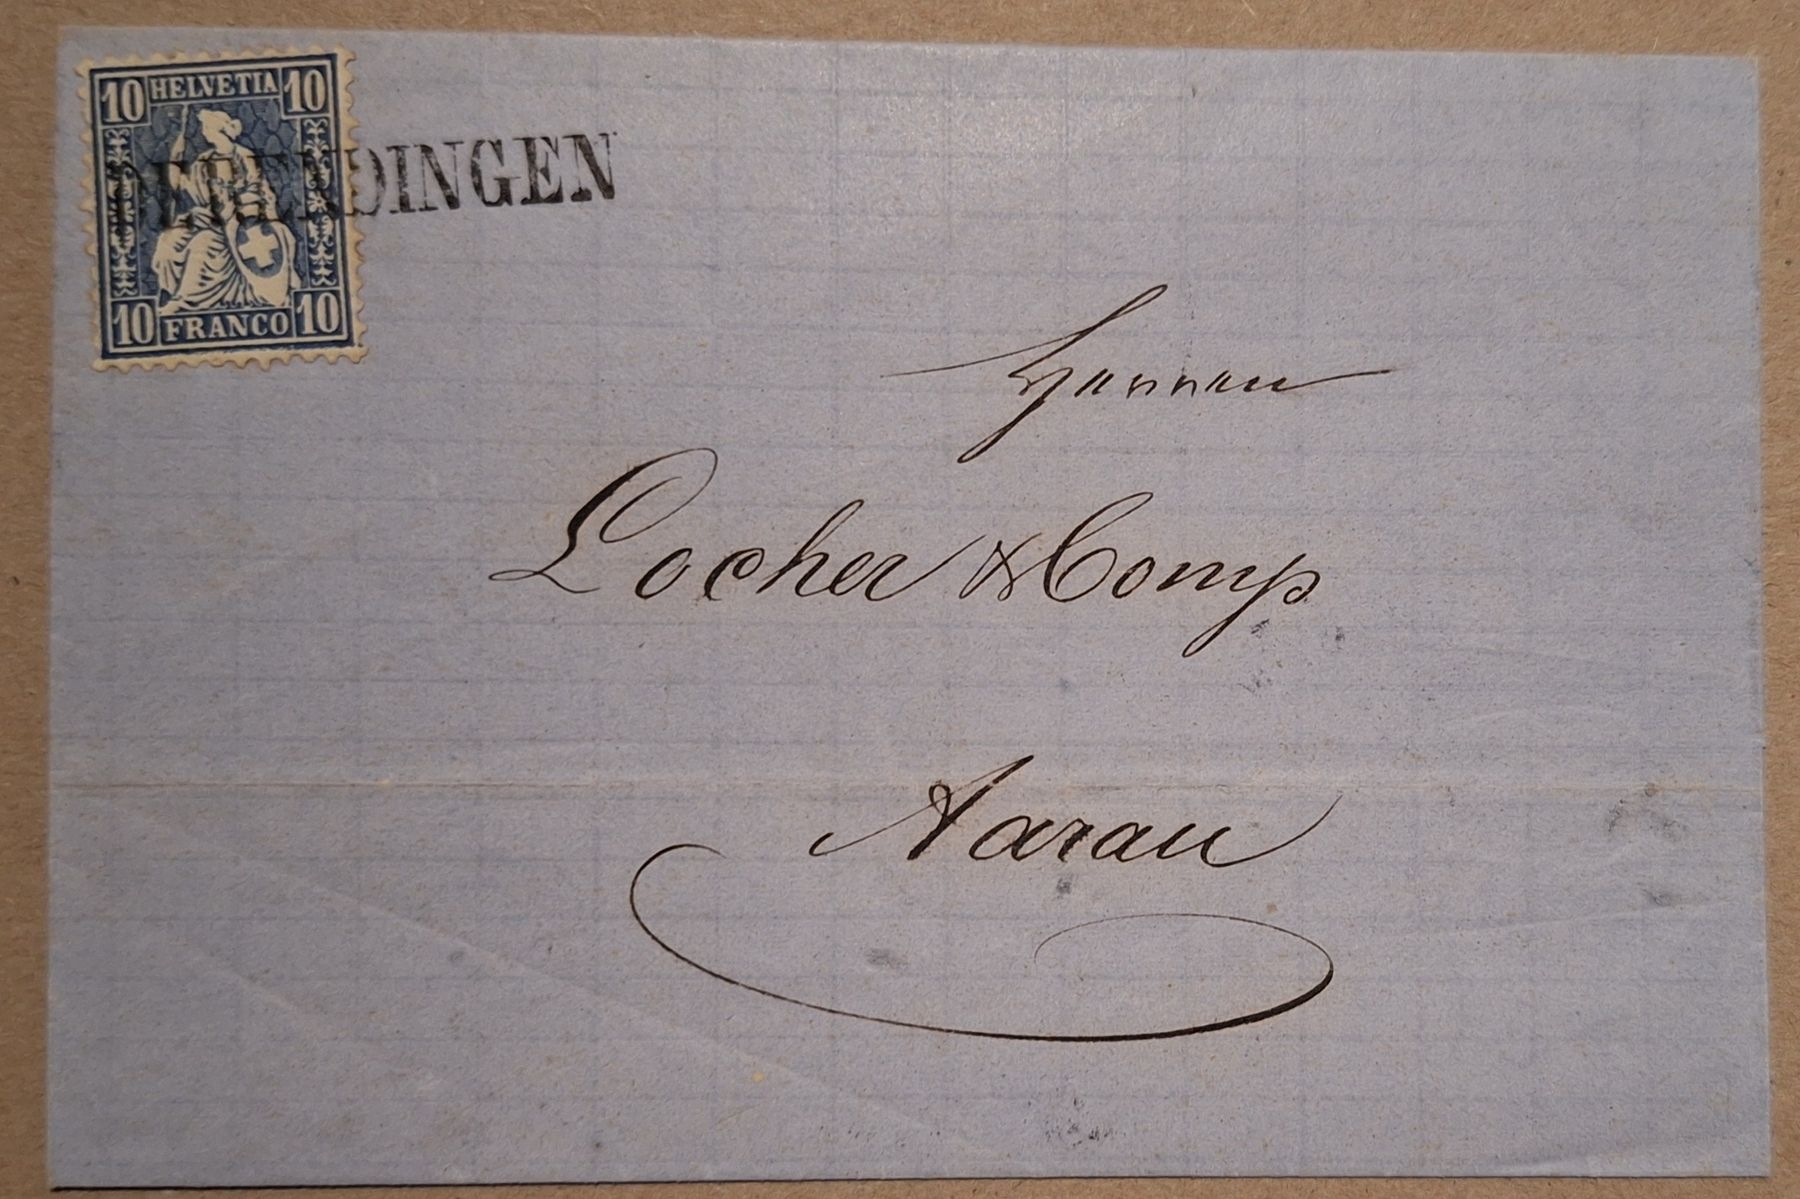 10 HELVETIA 10
DERENDINGEN
10 FRANCO 10
Herren
Locher & Comp
Aarau